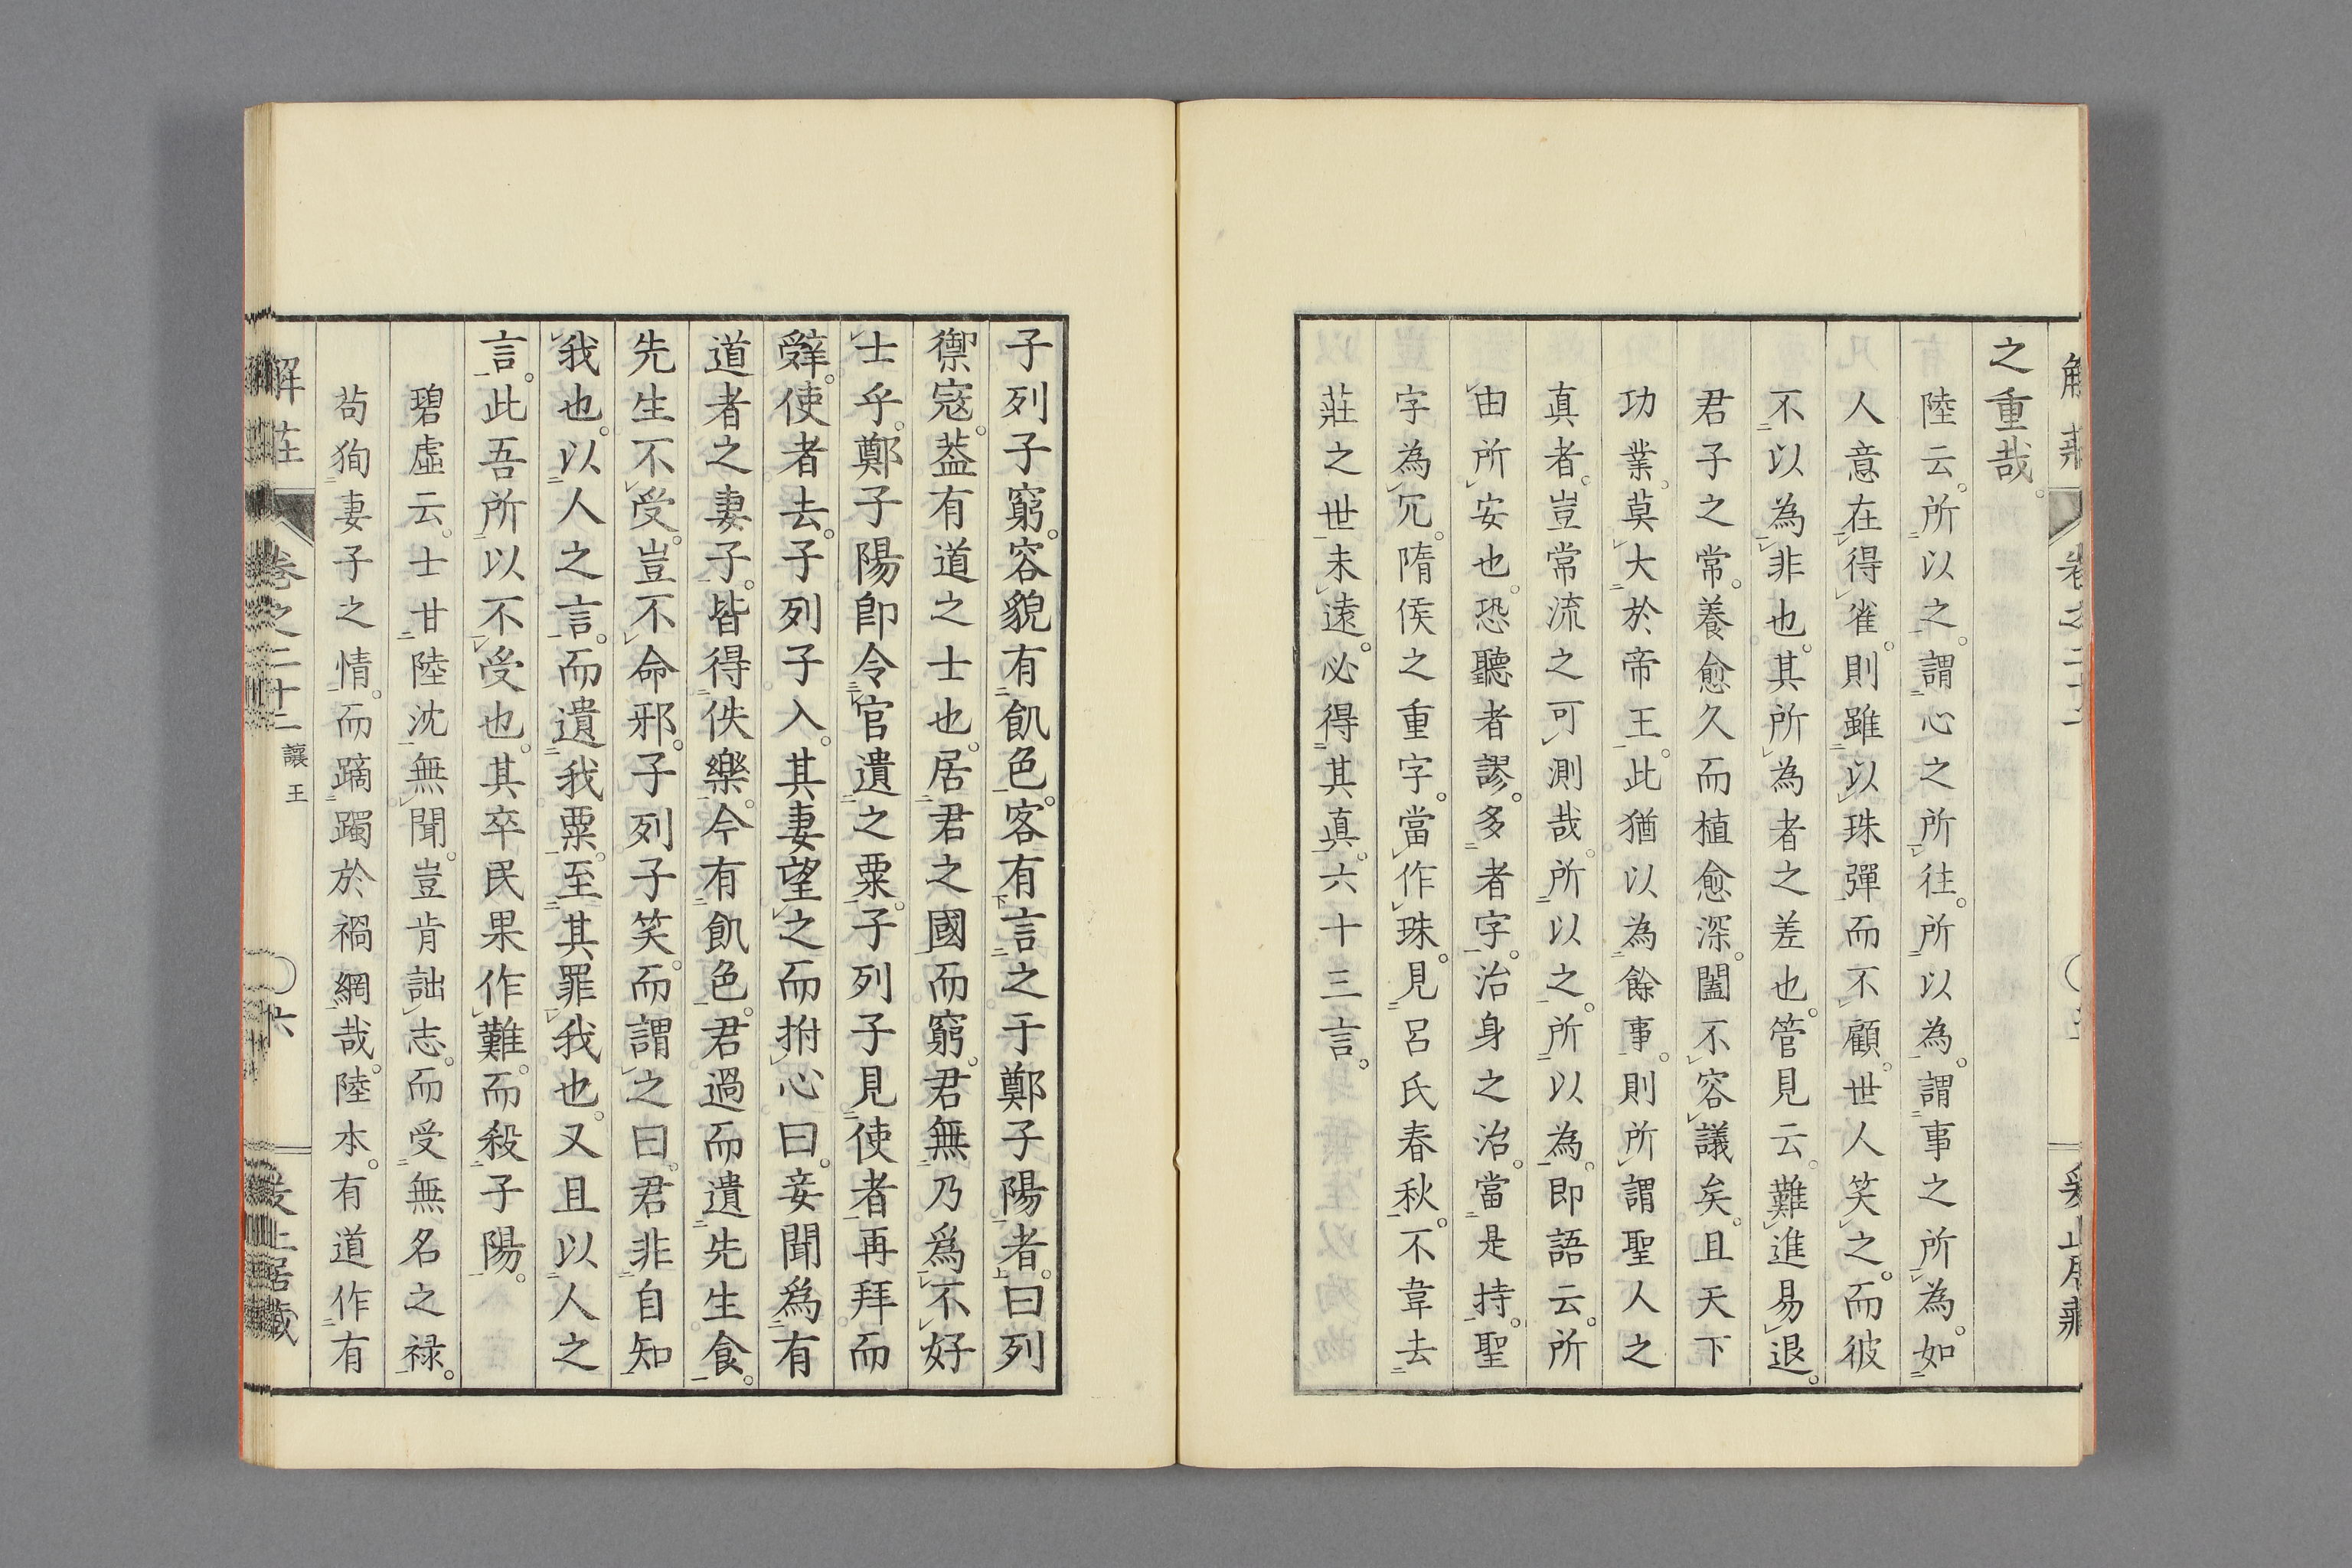 之重哉。
陸云。所以之。謂心之所往。所以為。謂事之所為。如
人意在得雀。則雖以珠彈而不顧。世人笑之。而彼
不以為非也。其所為者之差也。管見云。難進易退。
君子之常。養愈久而植愈深。闔不容議矣。且天下
功業。莫大於帝王。此猶以為餘事。則所謂聖人之
真者。豈常流之可測哉。所以之。所以為。即語云。所
由所安也。恐聽者謬。多者字。治身之治。當是持。聖
字為冗。隋侯之重字。當作珠。見呂氏春秋。不韋去
莊之世未遠。必得其真。六十三言。
子列子窮。容貌有飢色。客有言之于鄭子陽者。曰列
禦寇。葢有道之士也。居君之國而窮。君無乃爲不好
士乎。鄭子陽卽令官遺之粟。子列子見使者再拜而
辤。使者去。子列子入。其妻望之而拊心曰。妾聞爲有
道者之妻子。皆得佚樂。今有飢色。君過而遺先生食。
先生不受。豈不命邪。子列子笑。而謂之曰。君非自知
我也。以人之言。而遺我粟。至其罪我也。又且以人之
言。此吾所以不受也。其卒民果作難。而殺子陽。
碧虛云。士甘陸沈無聞。豈肯詘志。而受無名之祿。
苟狥妻子之情。而蹢躅於禍網哉。陸本。有道作有
解莊 卷之二十二 讓王 六